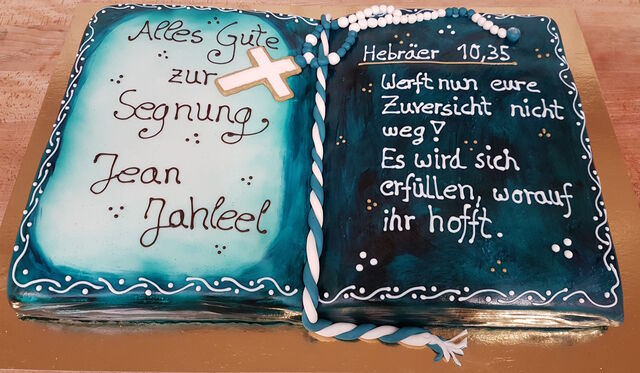 Alles Gute
zur
Segnung
Jean
Jahleel
Hebräer 10,35
Werft nun eure
Zuversicht nicht
weg!
Es wird sich
erfüllen, worauf
ihr hofft.